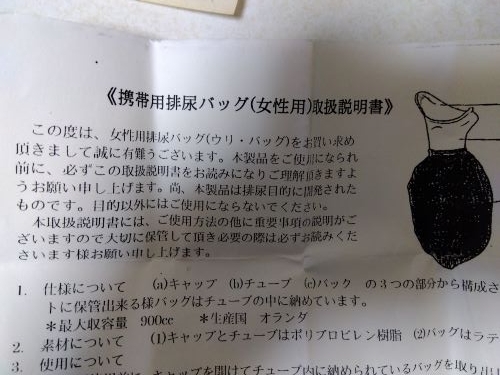 《携帯用排尿バッグ(女性用)取扱説明書》
この度は、女性用排尿バッグ(ウリ・バッグ)をお買い求め
頂きまして誠に有難うございます。本製品をご使用になられ
前に、必ずこの取扱説明書をお読みになりご理解頂きますよ
うお願い申し上げます。尚、本製品は排尿目的に開発された
ものです。目的以外にはご使用にならないでください。
本取扱説明書には、ご使用方法の他に重要事項の説明がご
ざいますので大切に保管して頂き必要の際は必ずお読みくだ
さいます様お願い申し上げます。
1. 仕様について (a)キャップ (b)チューブ (c)バック の3つの部分から構成さ
トに保管出来る様バッグはチューブの中に納めています。
*最大収容量 900cc *生産国 オランダ
2. 素材について (1)キャップとチューブはポリプロピレン樹脂 (2)バッグはラテ
3. 使用について
キャップを開けてチューブ内に納められているバッグを取り出し